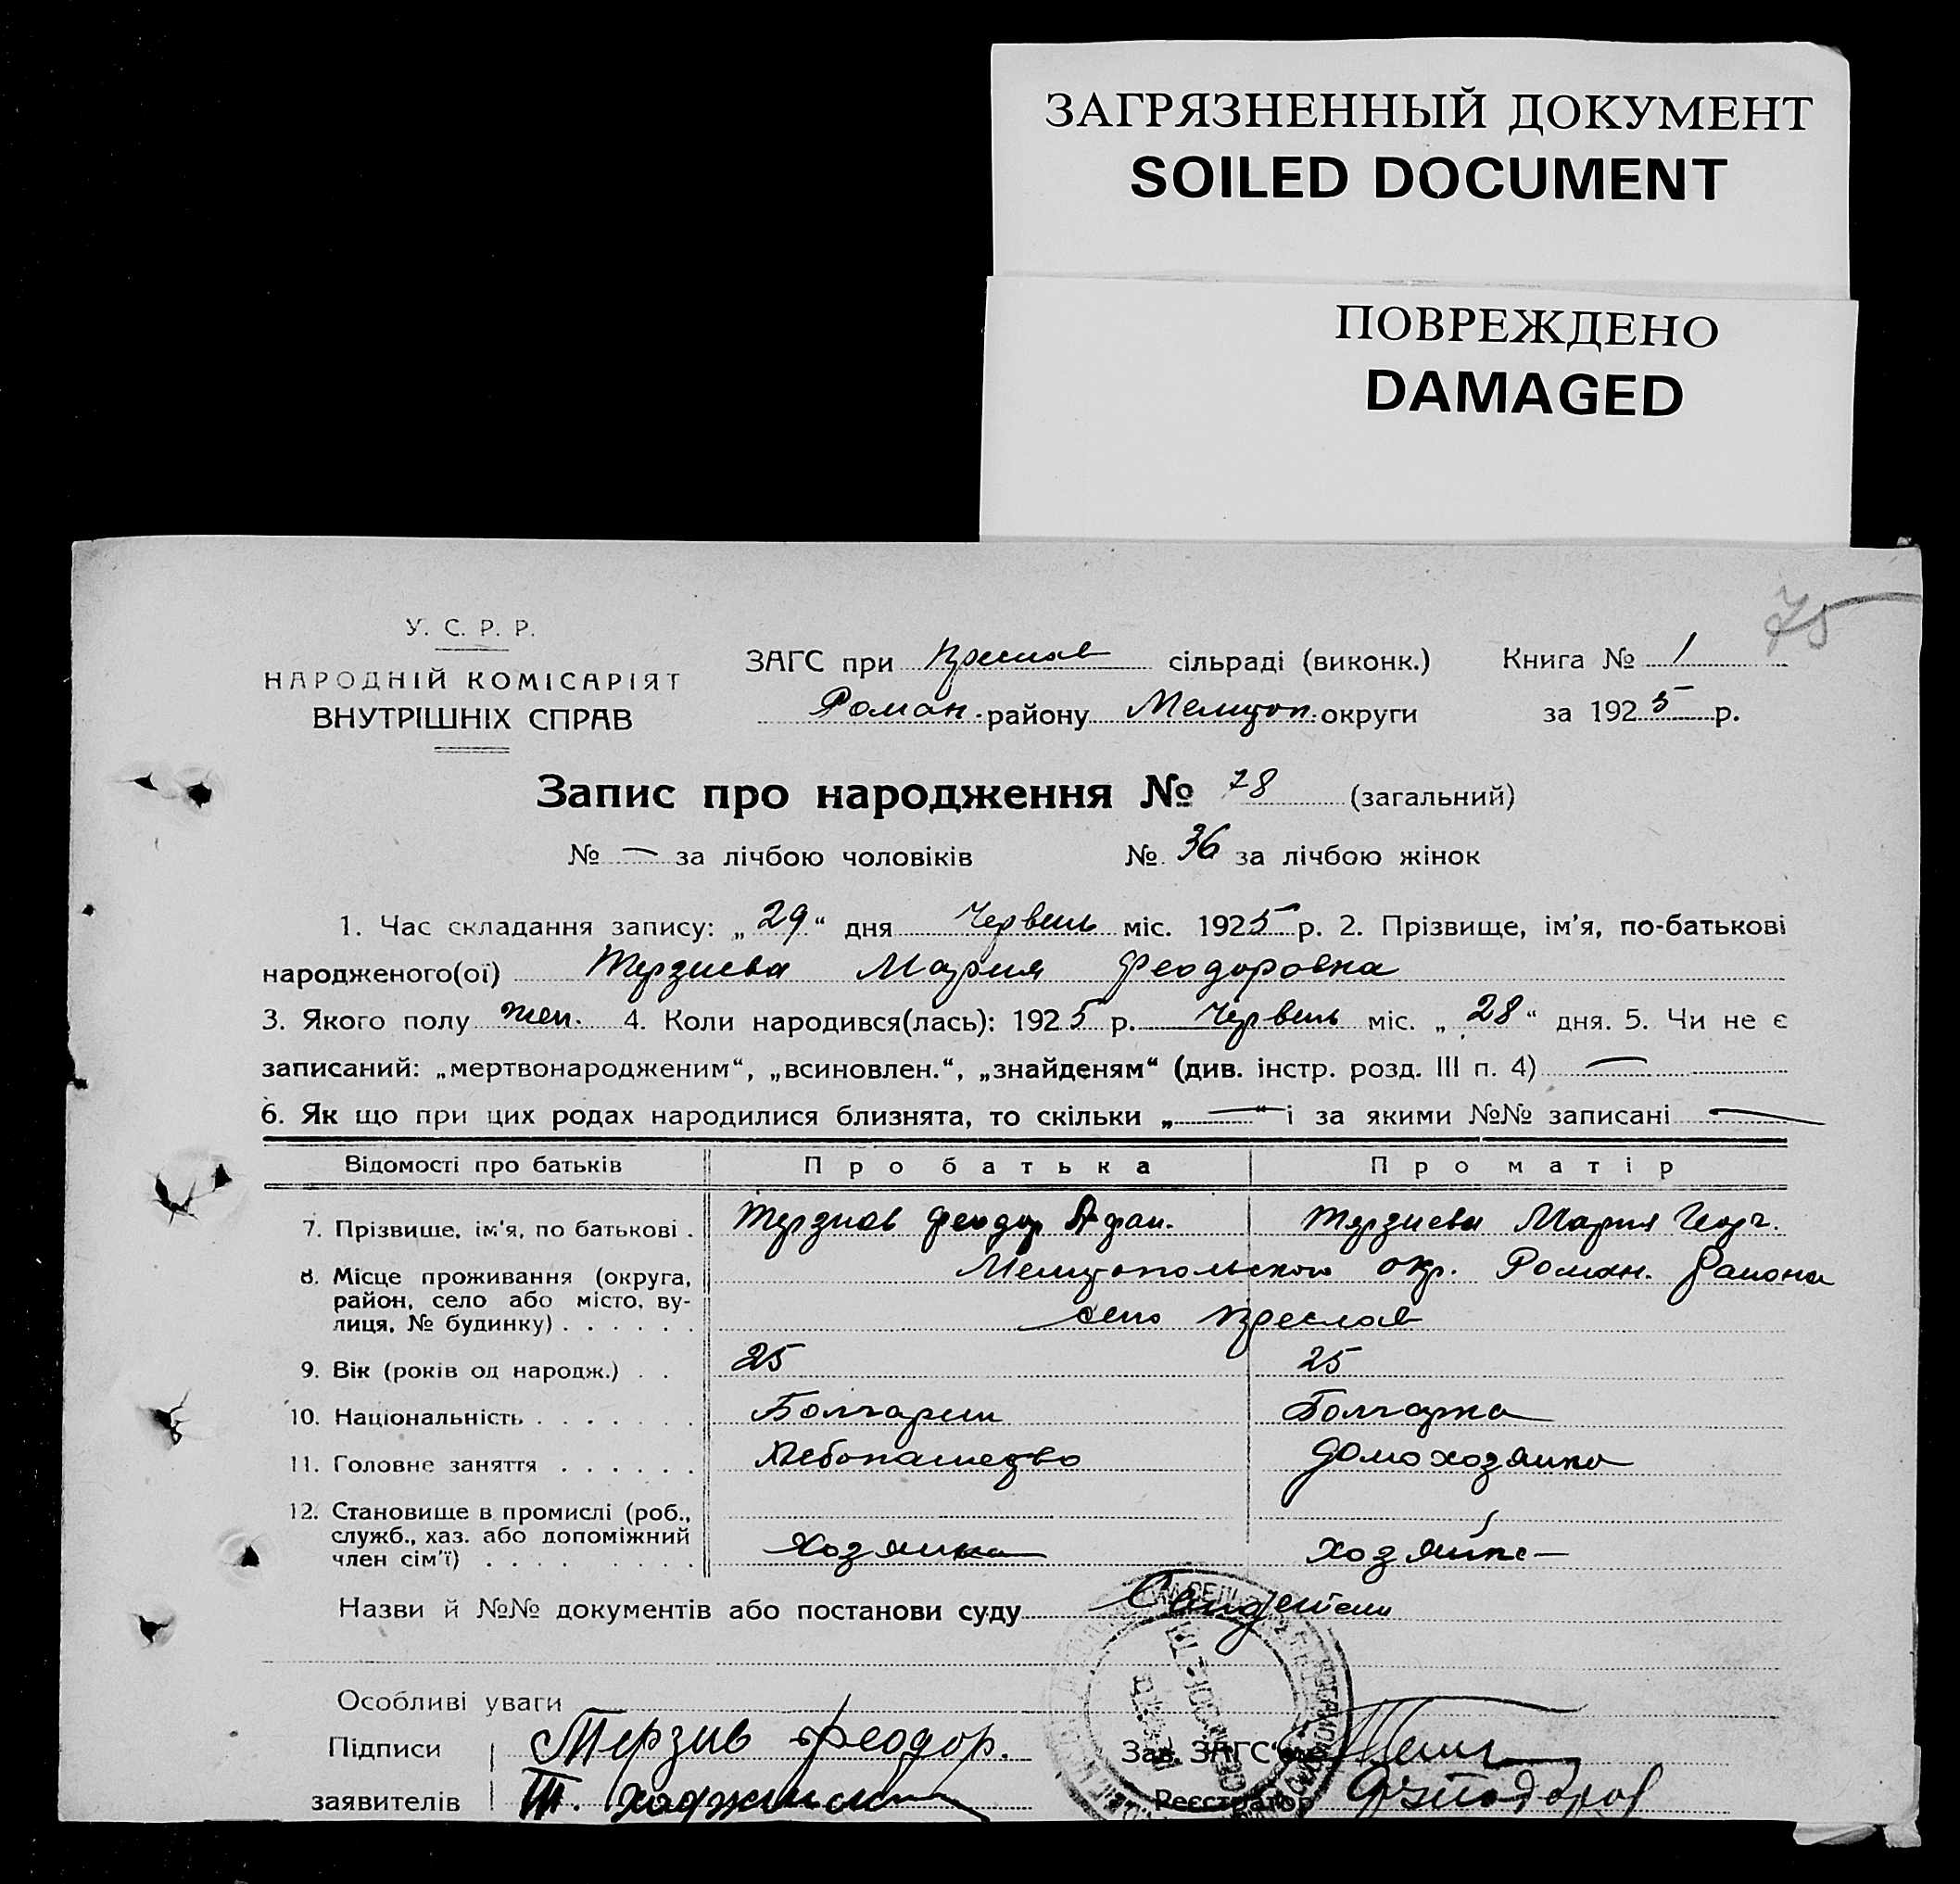 ЗАГРЯЗНЕННЫЙ ДОКУМЕНТ
SOILED DOCUMENT
ПОВРЕЖДЕНО
DAMAGED
75
У. С. Р. Р.
НАРОДНІЙ КОМІСАРІЯТ
ВНУТРІШНІХ СПРАВ
ЗАГС при Преслав сільраді (виконк.) Книга № 1
Роман. району Мелитоп. округи за 1925 р.
Запис про народження № 78 (загальний)
№ — за лічбою чоловіків № 36 за лічбою жінок
1. Час складання запису: „29“ дня Червень міс. 1925 р. 2. Прізвище, ім'я, по-батькові
народженого(ої) Терзиева Мария Феодоровна
3. Якого полу жен. 4. Коли народився(лась): 1925 р. Червень міс. „28“ дня. 5. Чи не є
записаний: „мертвонародженим“, „всиновлен.“, „знайденям“ (див. інстр. розд. III п. 4) —
6. Як що при цих родах народилися близнята, то скільки „—“ і за якими №№ записані —
Відомості про батьків Про батька Про матір
7. Прізвище, ім'я, по батькові . Терзиов Феодор Афан. Терзиева Мария Георг.
8. Місце проживання (округа, Мелитопольского окр. Роман. района
район, село або місто, ву-
лиця, № будинку) . . . . . . село Преслав
9. Вік (років од народж.) . . 25 25
10. Національність . . . . . . . Болгарин Болгарка
11. Головне заняття . . . . . . Хлебопашество домохозяйка
12. Становище в промислі (роб.,
служб., хаз. або допоміжний
член сім'ї) . . . . . . . . . Хозяина хозяйка
Назви й №№ документів або постанови суду
Особливі уваги
Підписи Терзив Феодор. Зав. ЗАГС'ом
заявителів Реєстратор